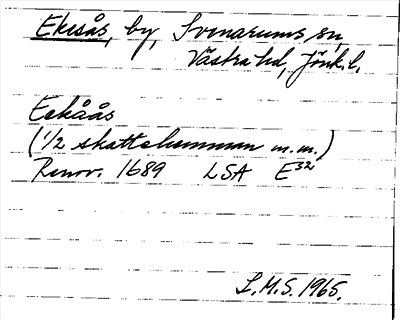 Ekesås, by, Svenarums sn,
Västra hd, Jönk. l.
Eekåås
(1/2 skattehemman m.m.)
Renov. 1689 LSA E32
L.M.S. 1965.